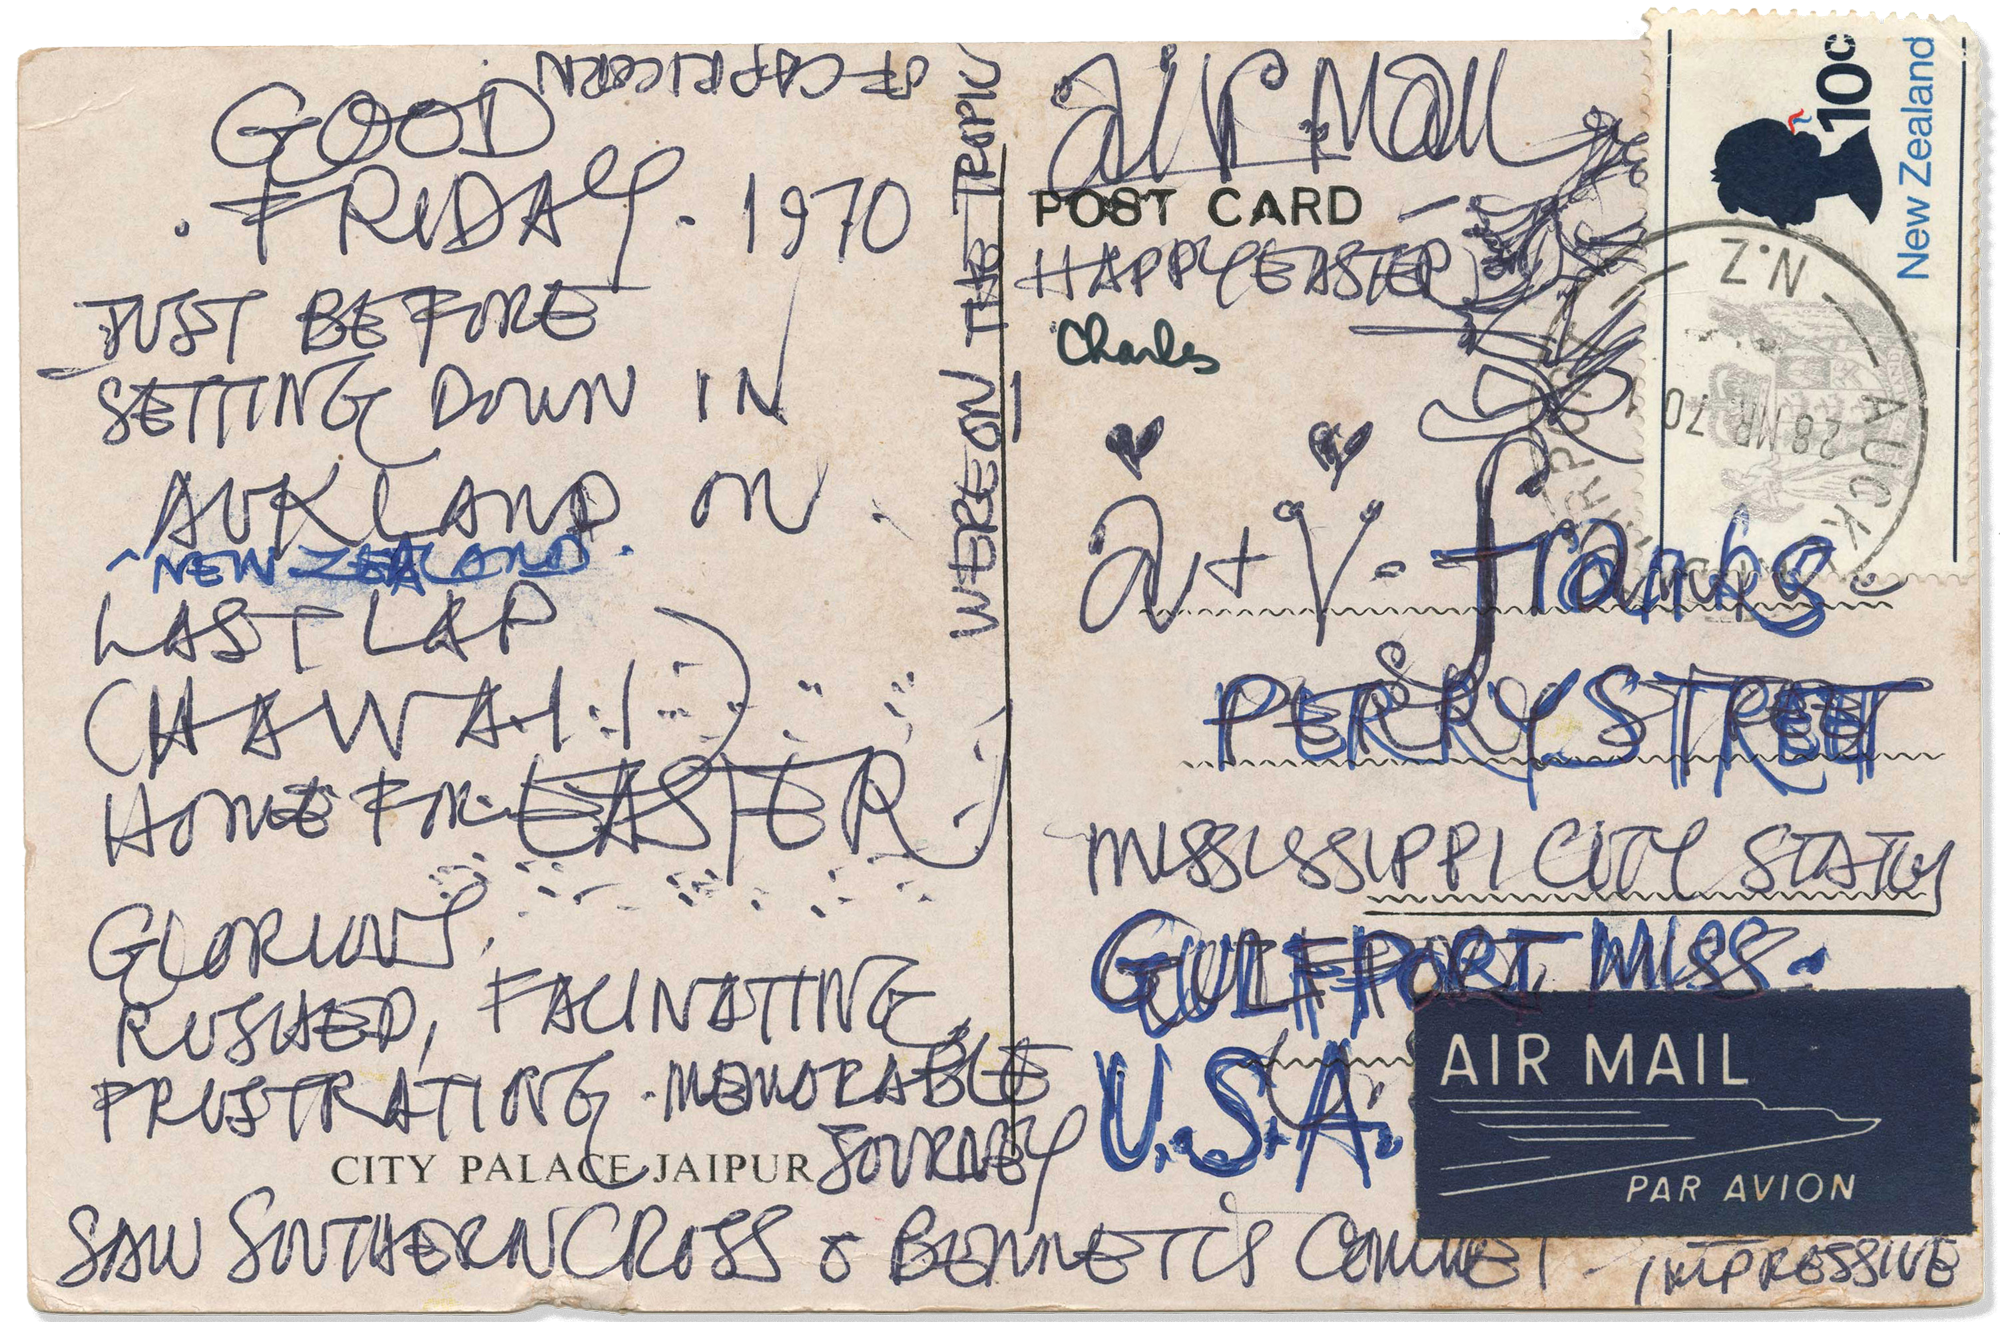 GOOD
FRIDAY. 1970
JUST BEFORE
SETTING DOWN IN
AUKLAND ON
NEW ZEALAND.
LAST LAP
(HAWAII)
HOME FOR EASTER
GLORIOUS,
RUSHED, FACINATING,
FRUSTRATING. MEMORABLE
JOURNEY
CITY PALACE JAIPUR
SAW SOUTHERN CROSS & BENNETT'S COMMET - IMPRESSIVE
WE'RE ON THE TROPIC
OF CAPRICORN
air Mail
POST CARD
HAPPY EASTER
Charles
a + V. franks.
PERRY STREET
MISSISSIPPI CITY STATION
GULFPORT MISS.
U.S.A.
AIR MAIL
PAR AVION
10c
New Zealand
AUCKLAND AIRPORT
N.Z.
28 MR 70